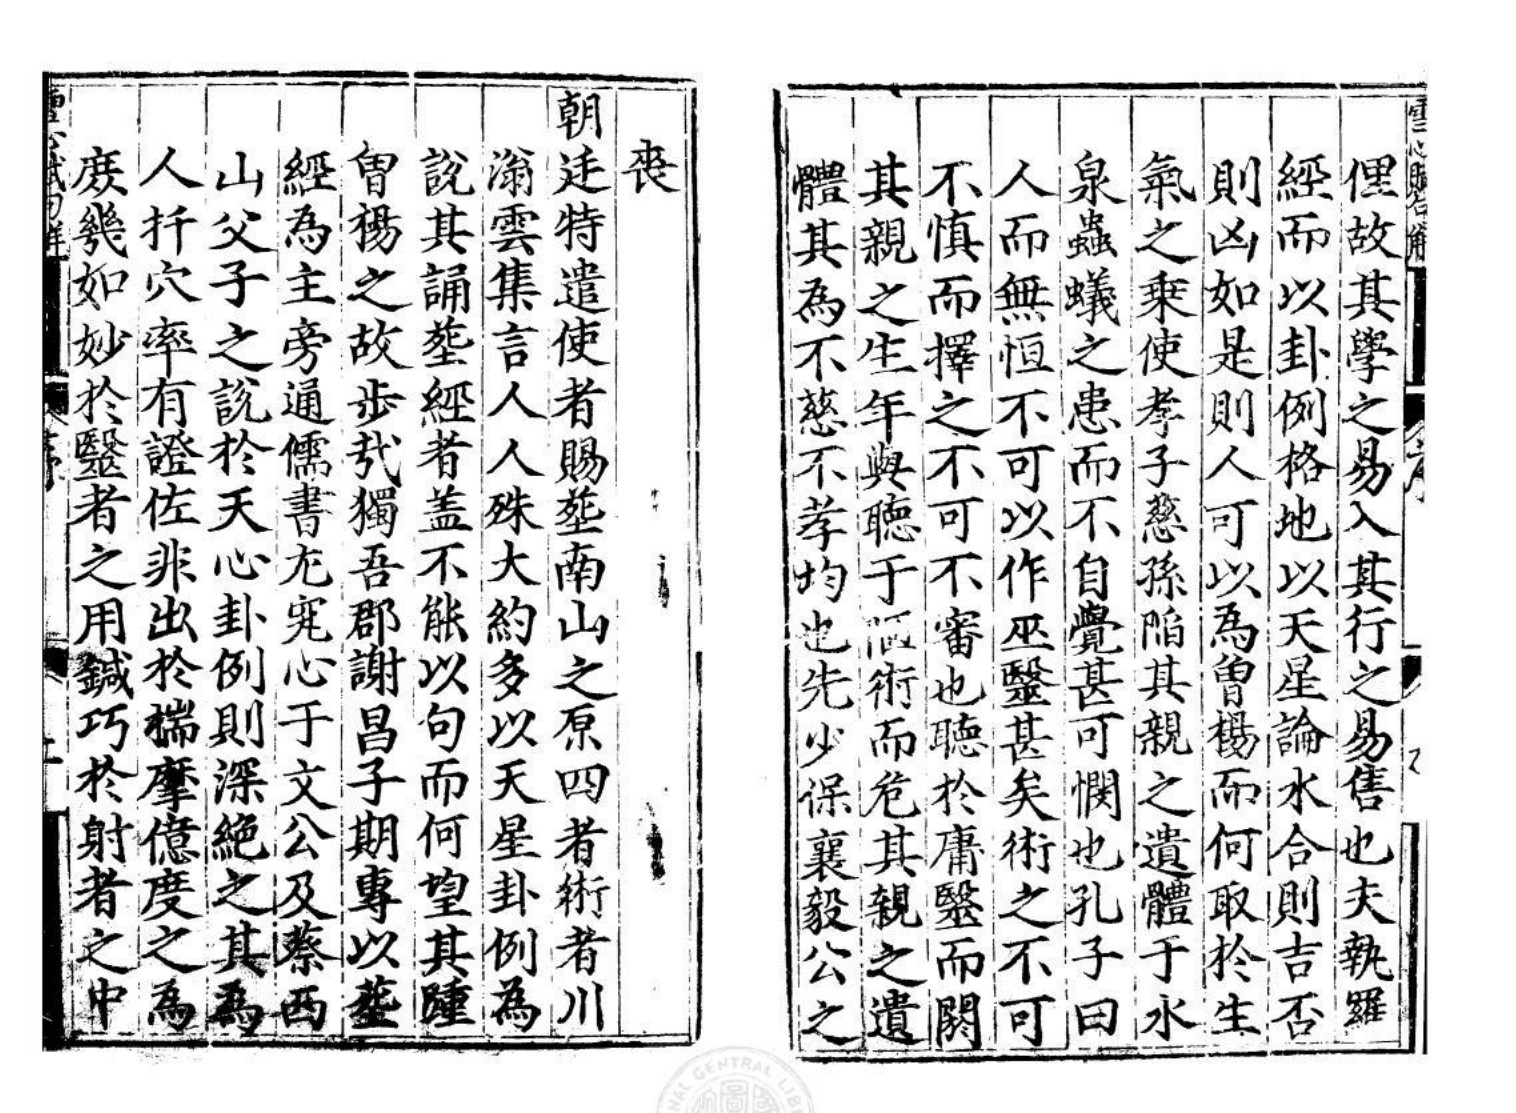 雪心賦句解
俚故其學之易入其行之易售也夫執羅
經而以卦例格地以天星論水合則吉否
則凶如是則人可以為曾楊而何取於生
氣之乘使孝子慈孫陷其親之遺體于水
泉蟲蟻之患而不自覺甚可憫也孔子曰
人而無恒不可以作巫醫甚矣術之不可
不慎而擇之不可不審也聽於庸醫而閼
其親之生年與聽于陋術而危其親之遺
體其為不慈不孝均也先少保襄毅公之
喪
朝廷特遣使者賜塟南山之原四者術者川
滃雲集言人人殊大約多以天星卦例為
說其誦塟經者盖不能以句而何望其踵
曾楊之故步㢤獨吾郡謝昌子期專以塟
經為主旁通儒書尤究心于文公及蔡西
山父子之說於天心卦例則深絶之其為
人扦穴率有證佐非出於揣摩億度之為
庻幾如妙於醫者之用鍼巧於射者之中